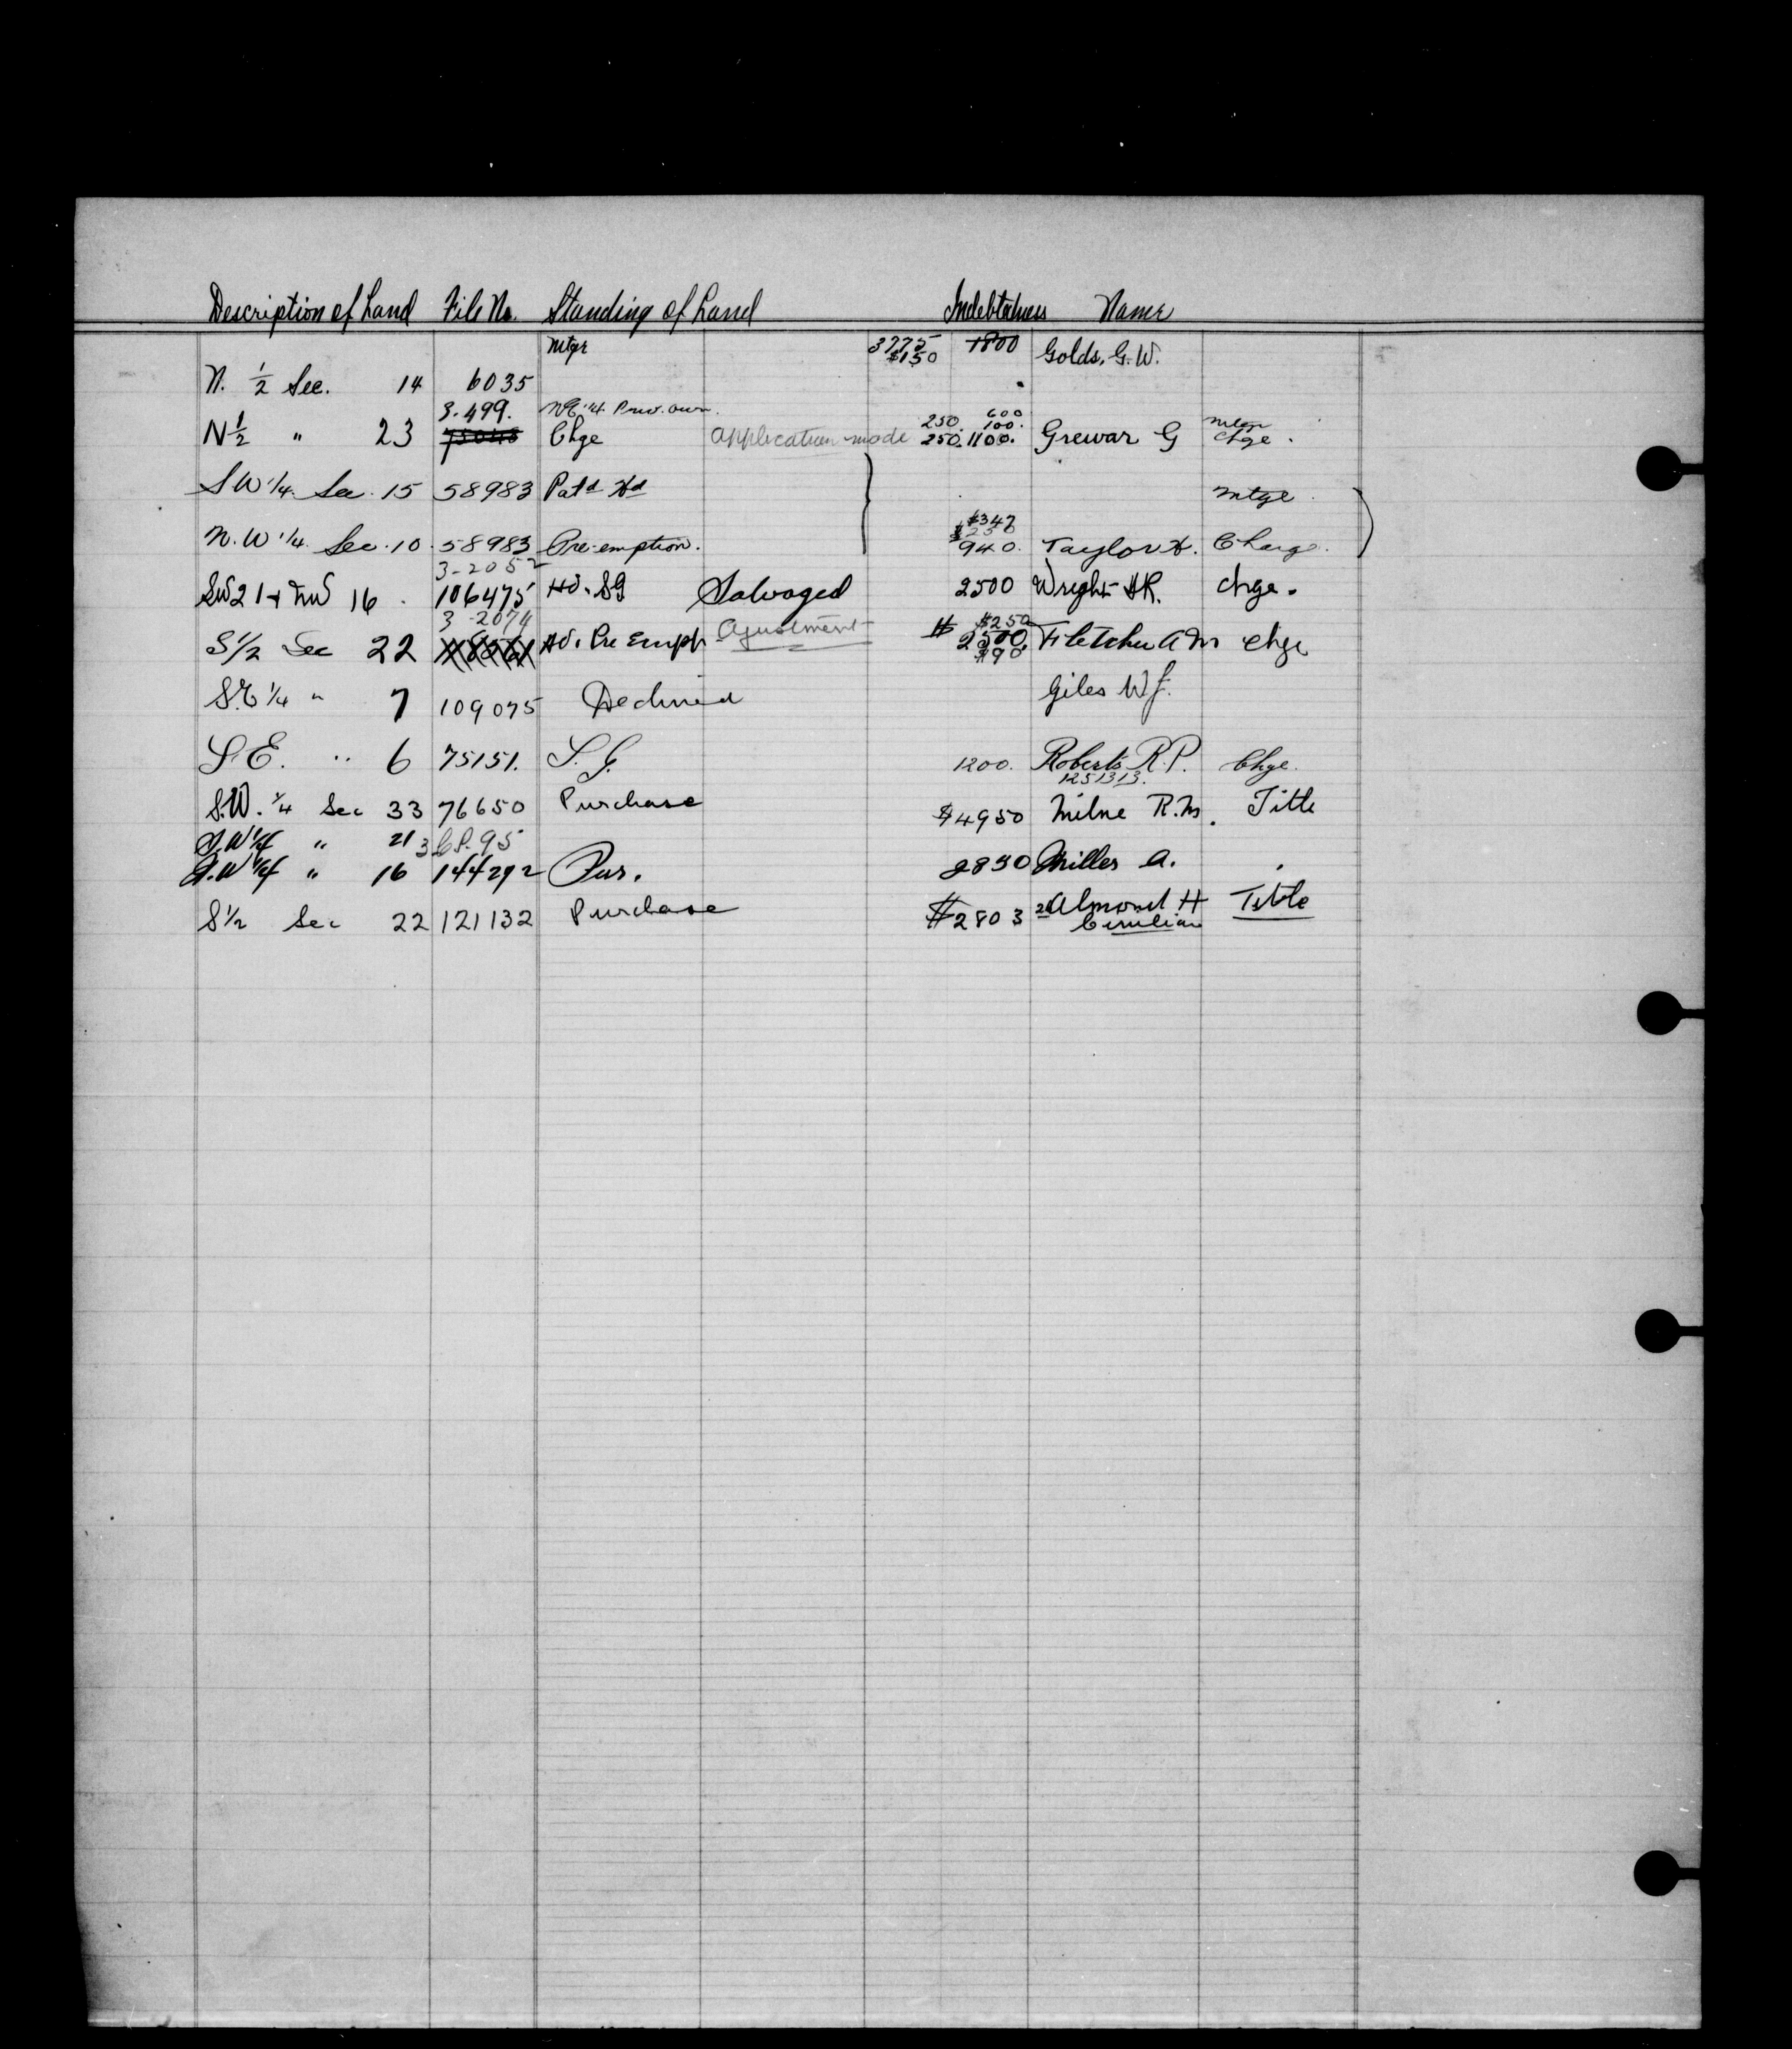 Description of Land File No. Standing of Land Indebtedness Name
Mtge 3775 1800 Golds, G. W.
$150
N. 1/2 Sec. 14 6035
3-499. NE 1/4 Priv. own. 250. 600
100.
N 1/2 " 23 75048 Chge Application made 250. 1100. Grewar G Mtge Chge.
SW 1/4 Sec. 15 58983 Patd Hd Mtge
$347
$250
N.W 1/4 Sec. 10 58983 Pre-emption. 940. Taylor H. Charge.
3-2052
SW 21 + NW 16. 106475 Hd. SG Salvaged 2500 Wright HR. Chge.
3-2074 Ajustment $250
S 1/2 Sec 22 Hd. Pre Empt $2500. Fletcher A M Chge
$90
S.E 1/4 " 7 109075 Declined Giles W J.
S.E. " 6 75151. S. G. 1200. Roberts R. P. Chge.
1251313.
S.W. 1/4 Sec 33 76650 Purchase $4950 Milne R. M. Title
S.W 1/4 " 21 3 S.P. 95
N.W 1/4 " 16 144292 Pur. 2850 Miller A.
S 1/2 Sec 22 121132 Purchase $2803 Almond H Title
Civilian